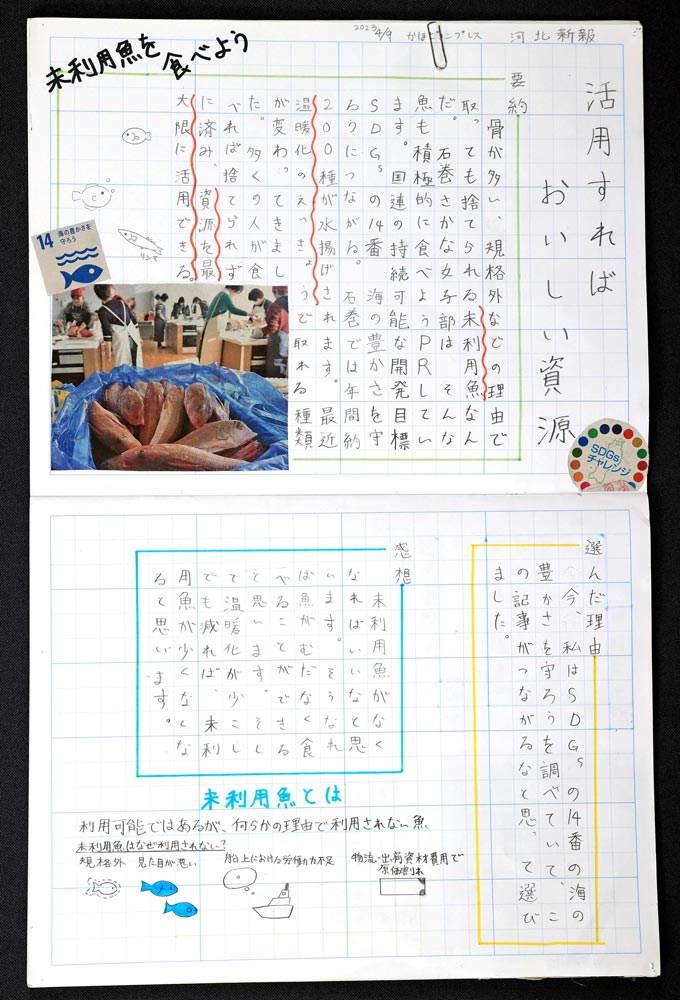 2023 4/9
河北新報
未利用魚を食べよう
活用すれば
おいしい資源
要約
骨が多い、規格外などの理由で
取っても捨てられる未利用魚なん
だ。石巻さかな女子部は、そんな
魚も積極的に食べようPRしてい
ます。国連の持続可能な開発目標
SDGsの14番 海の豊かさを守
ろうにつながる。石巻では年間約
200種が水揚げされます。最近
温暖化のえいきょうで取れる種類
が変わってきまし
た。多くの人が食
べれば捨てられず
に済み、資源を最
大限に活用できる。
サンマ
14 海の豊かさを
守ろう
SDGs
チャレンジ
選んだ理由
今、私はSDGsの14番の海の
豊かさを守ろうを調べていて、こ
の記事がつながるなと思って選び
ました。
感想
未利用魚がなく
なればいいなと思
います。そうなれ
ば魚がむだなく食
べることができる
と思います。そし
て温暖化が少こし
でも減れば、未利
用魚が少くなくな
ると思います。
未利用魚とは
利用可能ではあるが、何らかの理由で利用されない魚
未利用魚はなぜ利用されない?
規格外
見た目が悪い
船上における労働力不足
物流・出荷資材費用で
原価割れ